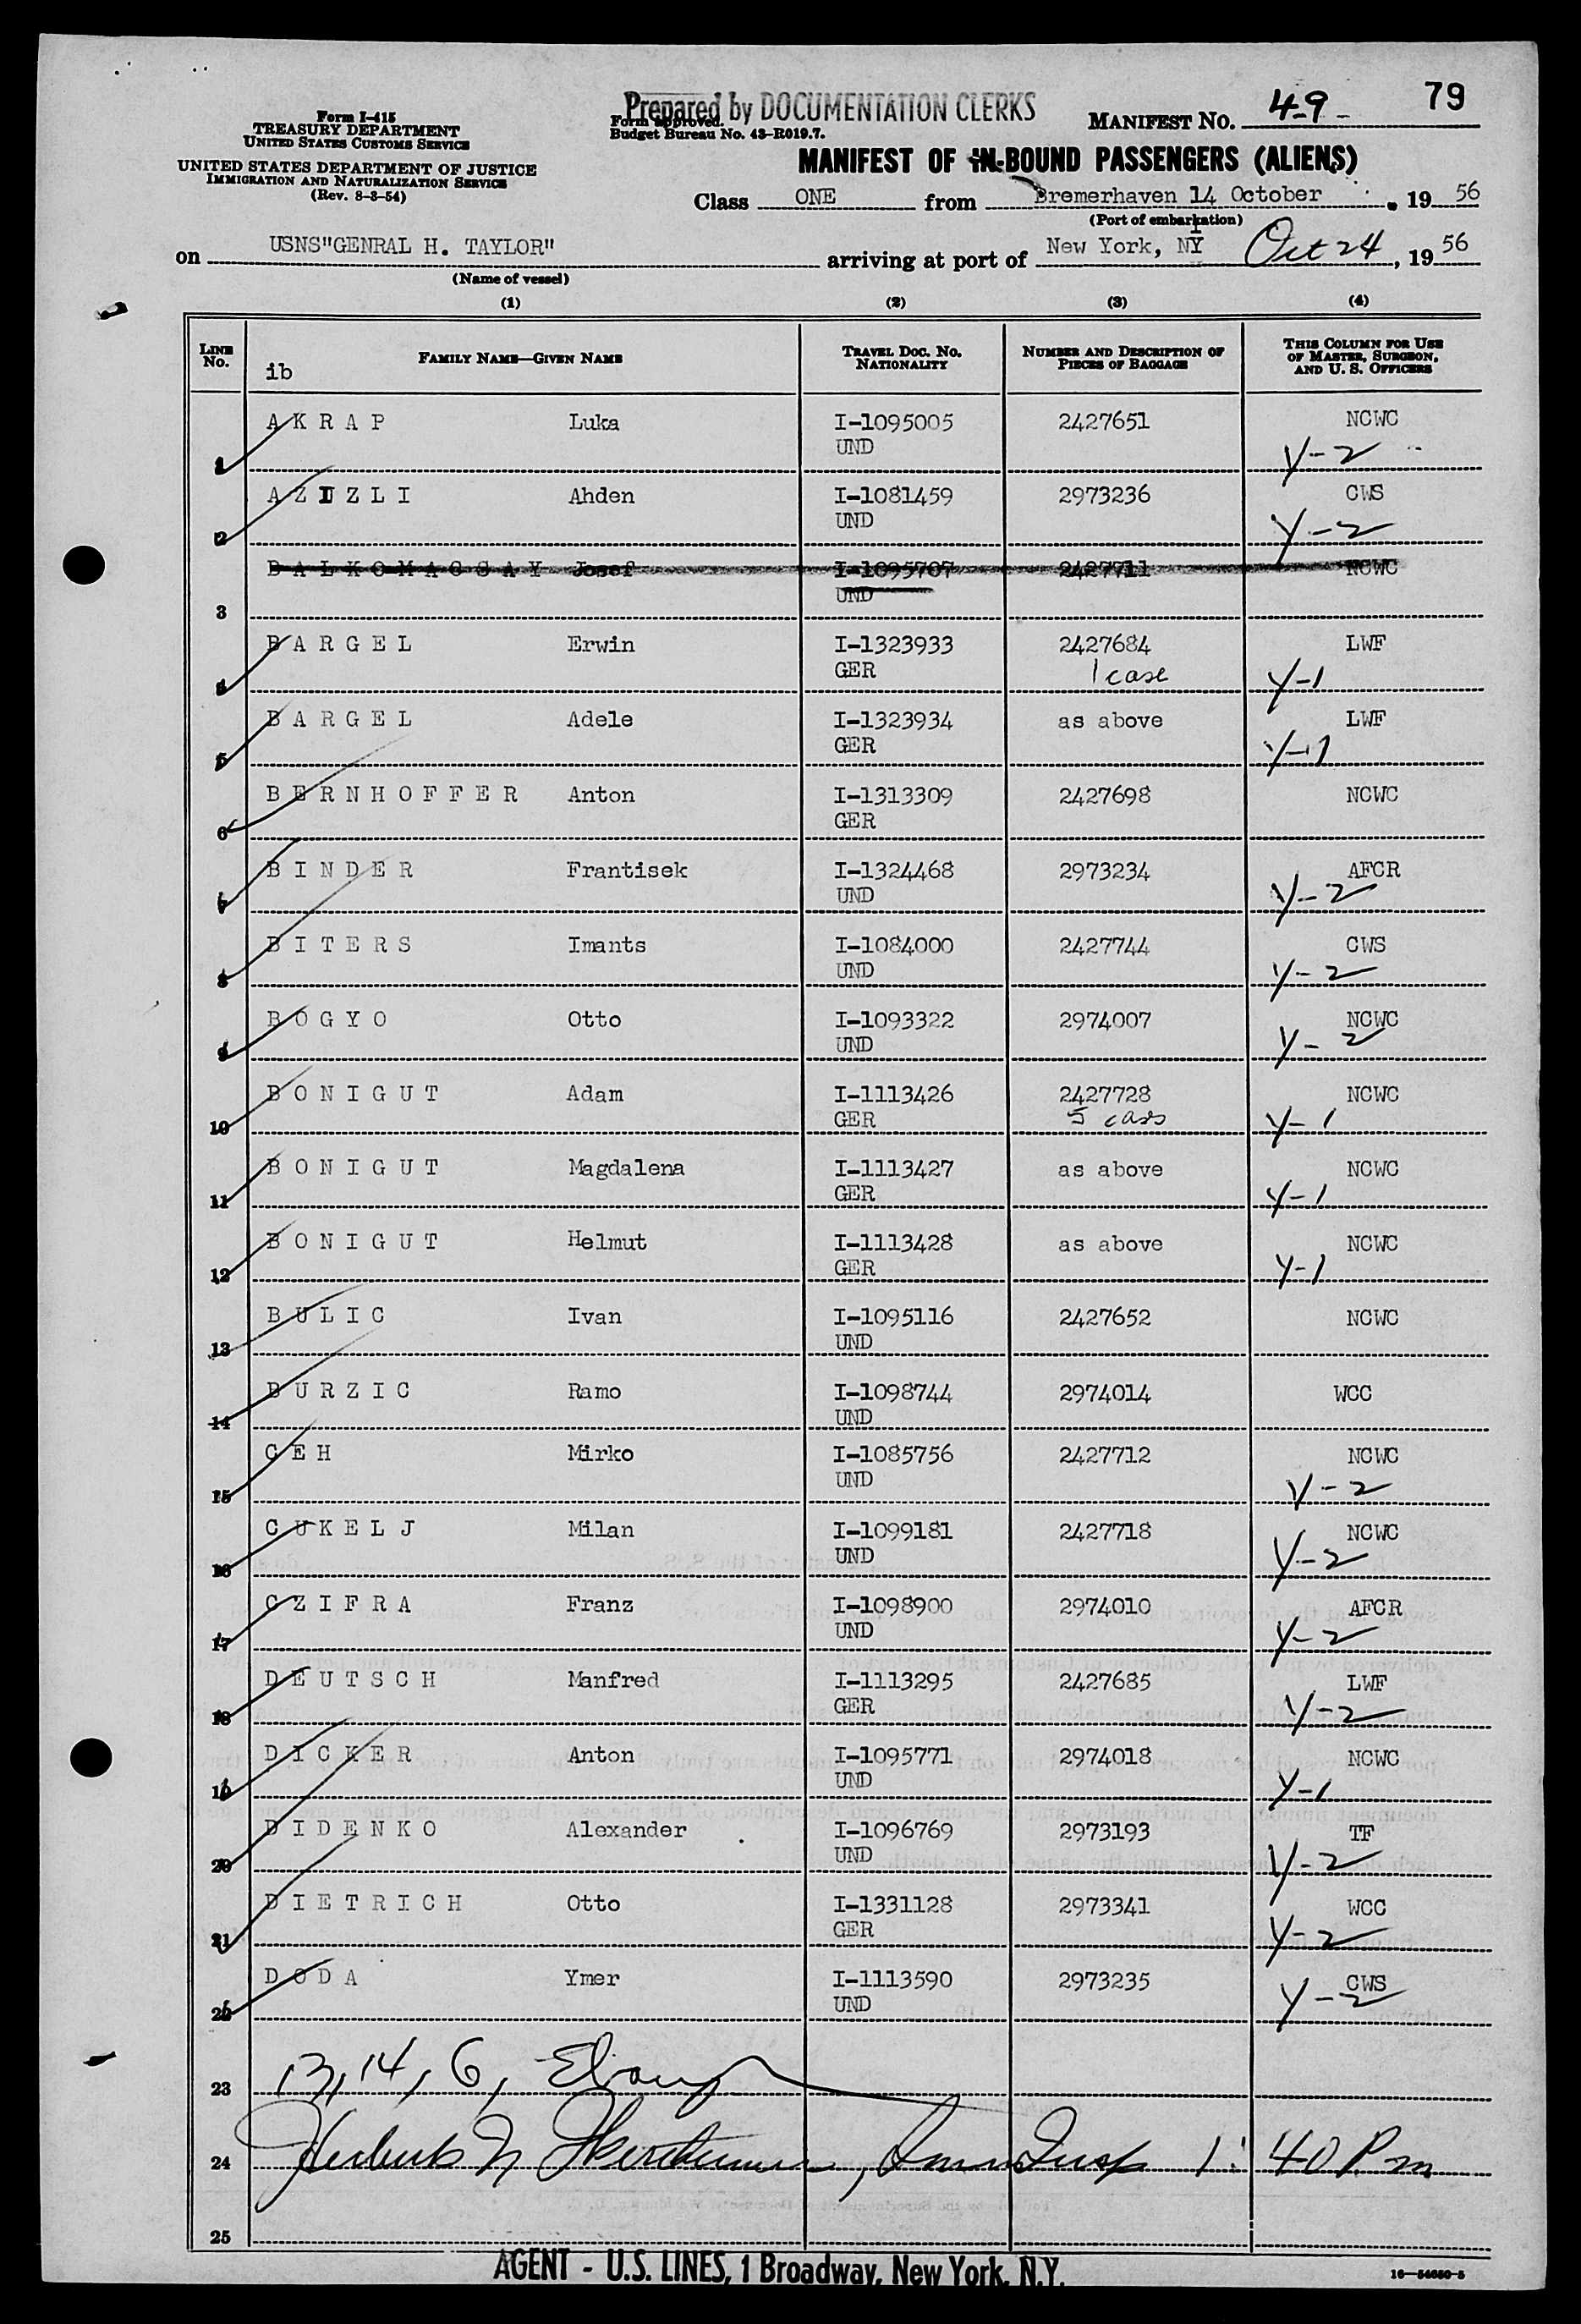 79
Prepared by DOCUMENTATION CLERKS
Form I-415
TREASURY DEPARTMENT
UNITED STATES CUSTOMS SERVICE
UNITED STATES DEPARTMENT OF JUSTICE
IMMIGRATION AND NATURALIZATION SERVICE
(Rev. 8-3-54)
Form approved.
Budget Bureau No. 43-R019.7.
MANIFEST NO. 49-
MANIFEST OF IN-BOUND PASSENGERS (ALIENS)
Class ONE from Bremerhaven 14 October, 19 56
(Port of embarkation)
on USNS"GENRAL H. TAYLOR" arriving at port of New York, NY Oct 24, 19 56
(Name of vessel)
(1) (2) (3) (4)
LINE NO. ib FAMILY NAME—GIVEN NAME TRAVEL DOC. NO. NATIONALITY NUMBER AND DESCRIPTION OF PIECES OF BAGGAGE THIS COLUMN FOR USE OF MASTER, SURGEON, AND U. S. OFFICERS
1 AKRAP Luka I-1095005 UND 2427651 NCWC Y-2
2 AZIZLI Ahden I-1081459 UND 2973236 CWS Y-2
3 BALKOMACSAY Josef I-1095707 UND 2427711 NCWC
4 BARGEL Erwin I-1323933 GER 2427684 1 case LWF Y-1
5 BARGEL Adele I-1323934 GER as above LWF Y-1
6 BERNHOFFER Anton I-1313309 GER 2427698 NCWC
7 BINDER Frantisek I-1324468 UND 2973234 AFCR Y-2
8 BITERS Imants I-1084000 UND 2427744 CWS Y-2
9 BOGYO Otto I-1093322 UND 2974007 NCWC Y-2
10 BONIGUT Adam I-1113426 GER 2427728 5 cass NCWC Y-1
11 BONIGUT Magdalena I-1113427 GER as above NCWC Y-1
12 BONIGUT Helmut I-1113428 GER as above NCWC Y-1
13 BULIC Ivan I-1095116 UND 2427652 NCWC
14 BURZIC Ramo I-1098744 UND 2974014 WCC
15 CEH Mirko I-1085756 UND 2427712 NCWC Y-2
16 CUKELJ Milan I-1099181 UND 2427718 NCWC Y-2
17 CZIFRA Franz I-1098900 UND 2974010 AFCR Y-2
18 DEUTSCH Manfred I-1113295 GER 2427685 LWF Y-2
19 DICKER Anton I-1095771 UND 2974018 NCWC Y-1
20 DIDENKO Alexander I-1096769 UND 2973193 TF Y-2
21 DIETRICH Otto I-1331128 GER 2973341 WCC Y-2
22 DODA Ymer I-1113590 UND 2973235 CWS Y-2
23 13, 14, 6,
24 Imm Insp 1:40 Pm
25
AGENT - U.S. LINES, 1 Broadway, New York, N.Y.
16—54650-5